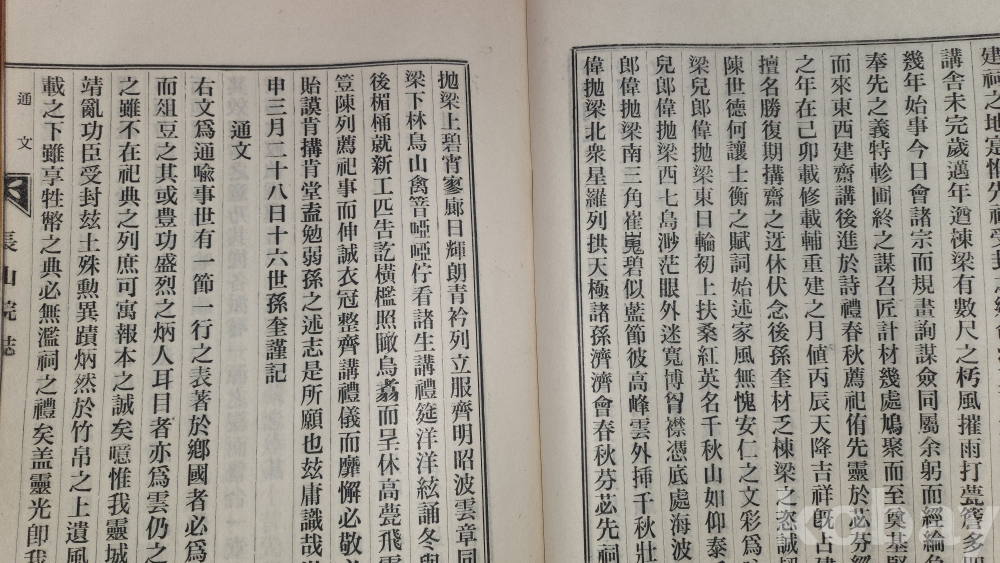 建祠之地寔惟先祠受封
講舍未完歲邁年遒棟梁有數尺之朽風摧雨打甍簷多
幾年始事今日會諸宗而規畫詢謀僉同屬余躬而經綸
奉先之義特軫圖終之謀召匠計材幾處鳩聚而至奠基
而來東西建齋講後進於詩禮春秋薦祀侑先靈於苾芬經
之年在己卯載修載輔重建之月値丙辰天降吉祥旣占建
擅名勝復期搆齋之迓休伏念後孫奎材乏棟梁之恣誠
陳世德何讓士衡之賦詞始述家風無愧安仁之文彩爲
梁兒郞偉抛梁東日輪初上扶桑紅英名千秋山如仰泰
兒郞偉抛梁西七島渺茫眼外迷寬博胷襟憑底處海波
郞偉抛梁南三角崔嵬碧似藍節彼高峰雲外揷千秋壯
偉抛梁北衆星羅列拱天極諸孫濟濟會春秋芬苾先祠
抛梁上碧霄寥廊日輝朗靑衿列立服齊明昭波雲章同
梁下林鳥山禽音啞啞佇看諸生講禮筵洋洋絃誦冬與
後楣桶就新工匹告訖橫檻照瞰鳥翥而呈休高甍飛
豈陳列薦祀事而伸誠衣冠整齊講禮儀而靡懈必敬
貽謨肯搆肯堂盍勉弱孫之述志是所願也玆庸識哉
申三月二十八日十六世孫奎謹記
通文
右文爲通喩事世有一節一行之表著於鄕國者必爲
而俎豆之其或豊功盛烈之炳人耳目者亦爲雲仍之
之雖不在祀典之列庶可寓報本之誠矣噫惟我靈城
靖亂功臣受封玆土殊勳異蹟炳然於竹帛之上遺風
載之下雖享牲幣之典必無濫祠之禮矣盖靈光卽我
通文
長山院誌
kobay